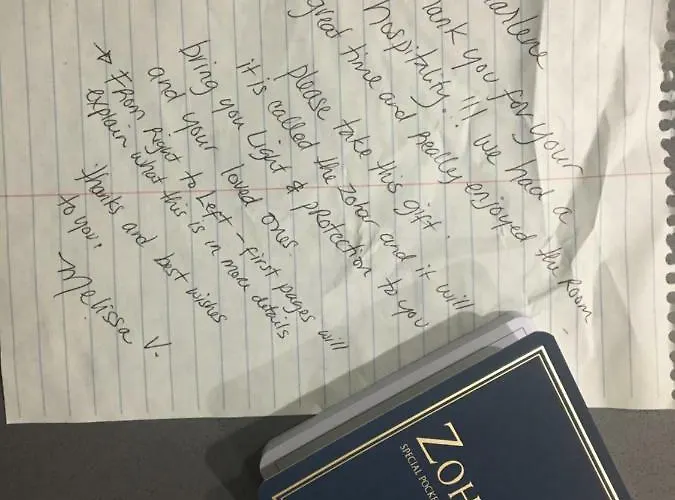 arlene
hank you for your
hospitality!!! we had a
great time and really enjoyed the room
please take this gift.
it is called the zohar and it will
bring you Light & protection to you
and your loved ones.
→ From Right to Left – first pages will
explain what this is in more details
thanks and best wishes
to you.
Melissa V.
ZOH
SPECIAL POCKE